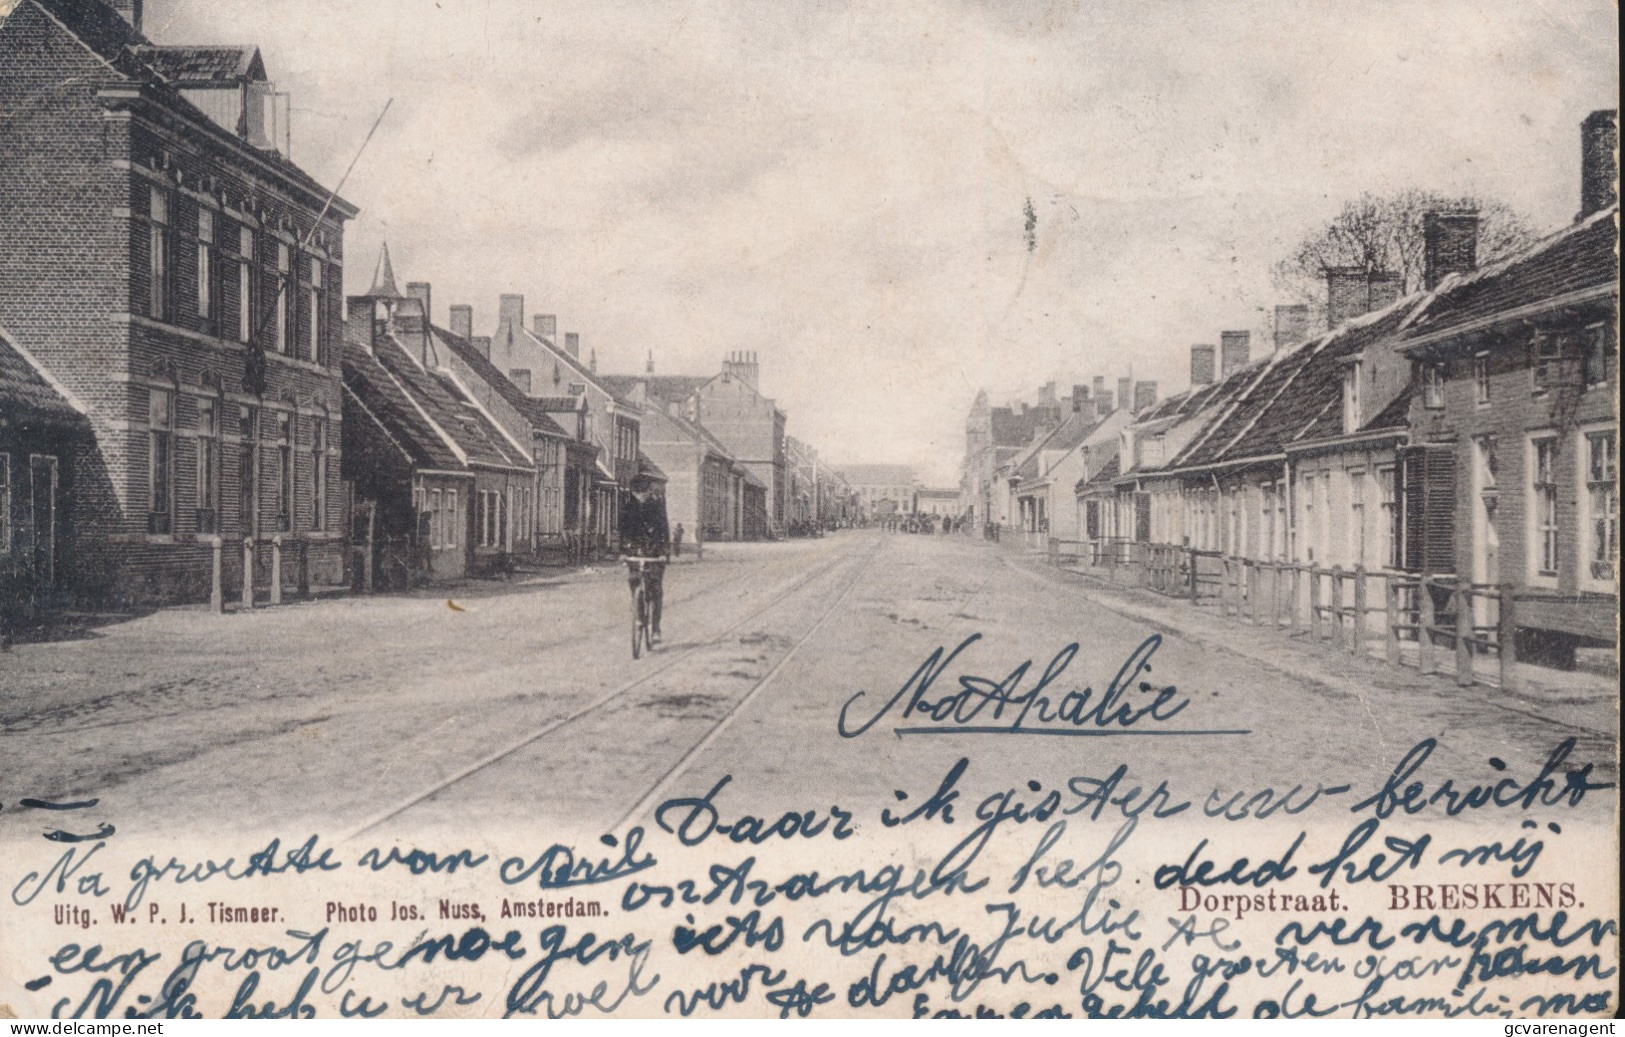 Nathalie
Daar ik gister uw bericht
Na groette van
ontvangen heb. deed het mij
Dorpstraat. BRESKENS.
Uitg. W. P. J. Tismeer. Photo Jos. Nuss, Amsterdam.
een groot genoegen iets van Julie te vernemen
Nik heb u er voor te danken. Vele groeten aan
en geheel de familie
delcampe.net
gcvarenagent